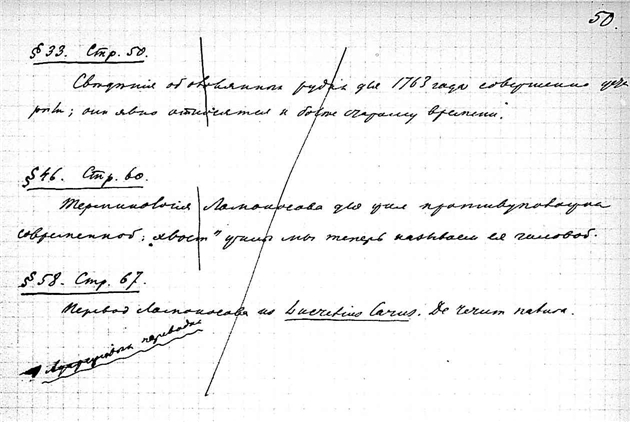 50.
§33. Стр. 50.
Свѣдѣнія об оловянной рудѣ для 1763 года совершенно
они явно относятся к болѣе старому времени.
§46. Стр. 60.
Терминологія Ломоносова для жил противуположна
современной; „хвост" жилы мы теперь называем ея головой.
§58. Стр. 67.
Перевод Ломоносова из Lucretius Carus. De rerum natura.
перевода